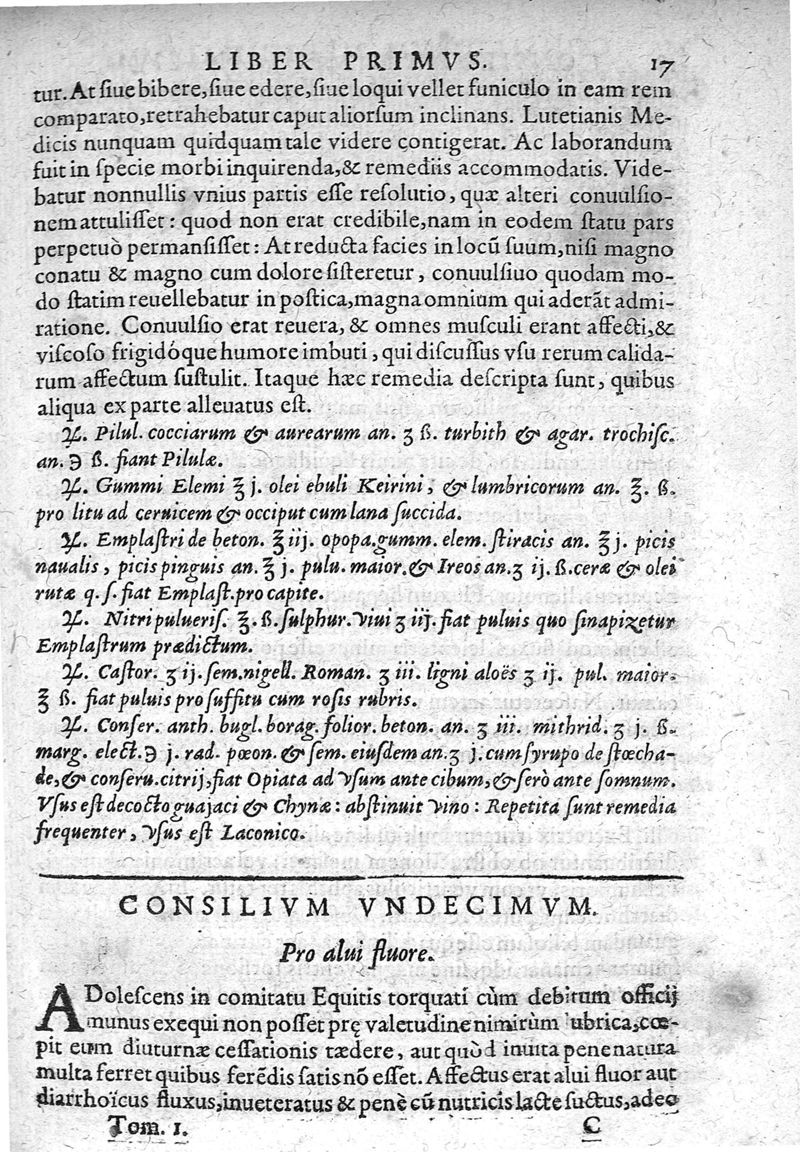 LIBER PRIMVS. 17
tur. At ſiue bibere, ſiue edere, ſiue loqui vellet funiculo in eam rem
comparato, retrahebatur caput aliorſum inclinans. Lutetianis Me-
dicis nunquam quidquam tale videre contigerat. Ac laborandum
fuit in ſpecie morbi inquirenda, & remediis accommodatis. Vide-
batur nonnullis vnius partis eſſe reſolutio, quæ alteri conuulſio-
nem attuliſſet: quod non erat credibile, nam in eodem ſtatu pars
perpetuò permanſiſſet: At reducta facies in locū ſuum, niſi magno
conatu & magno cum dolore ſiſteretur, conuulſiuo quodam mo-
do ſtatim reuellebatur in poſtica, magna omnium qui aderāt admi-
ratione. Conuulſio erat reuera, & omnes muſculi erant affecti, &
viſcoſo frigidóque humore imbuti, qui diſcuſſus vſu rerum calida-
rum affectum ſuſtulit. Itaque hæc remedia deſcripta ſunt, quibus
aliqua ex parte alleuatus eſt.
♃. Pilul. cocciarum & aurearum an. ʒ ß. turbith & agar. trochiſc.
an. ℈ ß. fiant Pilulæ.
♃. Gummi Elemi ℥ j. olei ebuli Keirini, & lumbricorum an. ℥. ß.
pro litu ad ceruicem & occiput cum lana ſuccida.
♃. Emplaſtri de beton. ℥ iij. opopa. gumm. elem. ſtiracis an. ℥ j. picis
naualis, picis pinguis an. ℥ j. pulu. maior. & Ireos an. ʒ ij. ß. ceræ & olei
rutæ q. ſ. fiat Emplaſt. pro capite.
♃. Nitri pulueriſ. ℥. ß. ſulphur. viui ʒ iij. fiat puluis quo ſinapizetur
Emplaſtrum prædictum.
♃. Caſtor. ʒ ij. ſem. nigell. Roman. ʒ iii. ligni aloës ʒ ij. pul. maior.
℥ ß. fiat puluis pro ſuffitu cum roſis rubris.
♃. Conſer. anth. bugl. borag. folior. beton. an. ʒ iii. mithrid. ʒ j. ß.
marg. elect. ℈ j. rad. pœon. & ſem. eiuſdem an. ʒ j. cum ſyrupo de ſtœcha-
de, & conſeru. citrij, fiat Opiata ad vſum ante cibum, & ſerò ante ſomnum.
Vſus eſt decocto guajaci & Chynæ: abſtinuit vino: Repetita ſunt remedia
frequenter, vſus eſt Laconico.
CONSILIVM VNDECIMVM.
Pro alui fluore.
ADoleſcens in comitatu Equitis torquati cùm debitum officij
munus exequi non poſſet prę valetudine nimirùm ubrica, cœ-
pit eum diuturnæ ceſſationis tædere, aut quòd inuita pene natura
multa ferret quibus ferēdis ſatis nō eſſet. Affectus erat alui fluor aut
diarrhoïcus fluxus, inueteratus & penè cū nutricis lacte ſuctus, adeo
Tom. 1. C